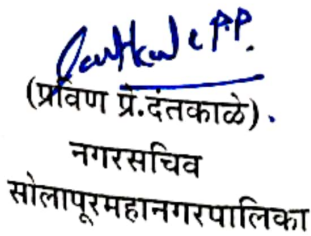 (प्रविण प्रे.दंतकाळे).
नगरसचिव
सोलापूरमहानगरपालिका